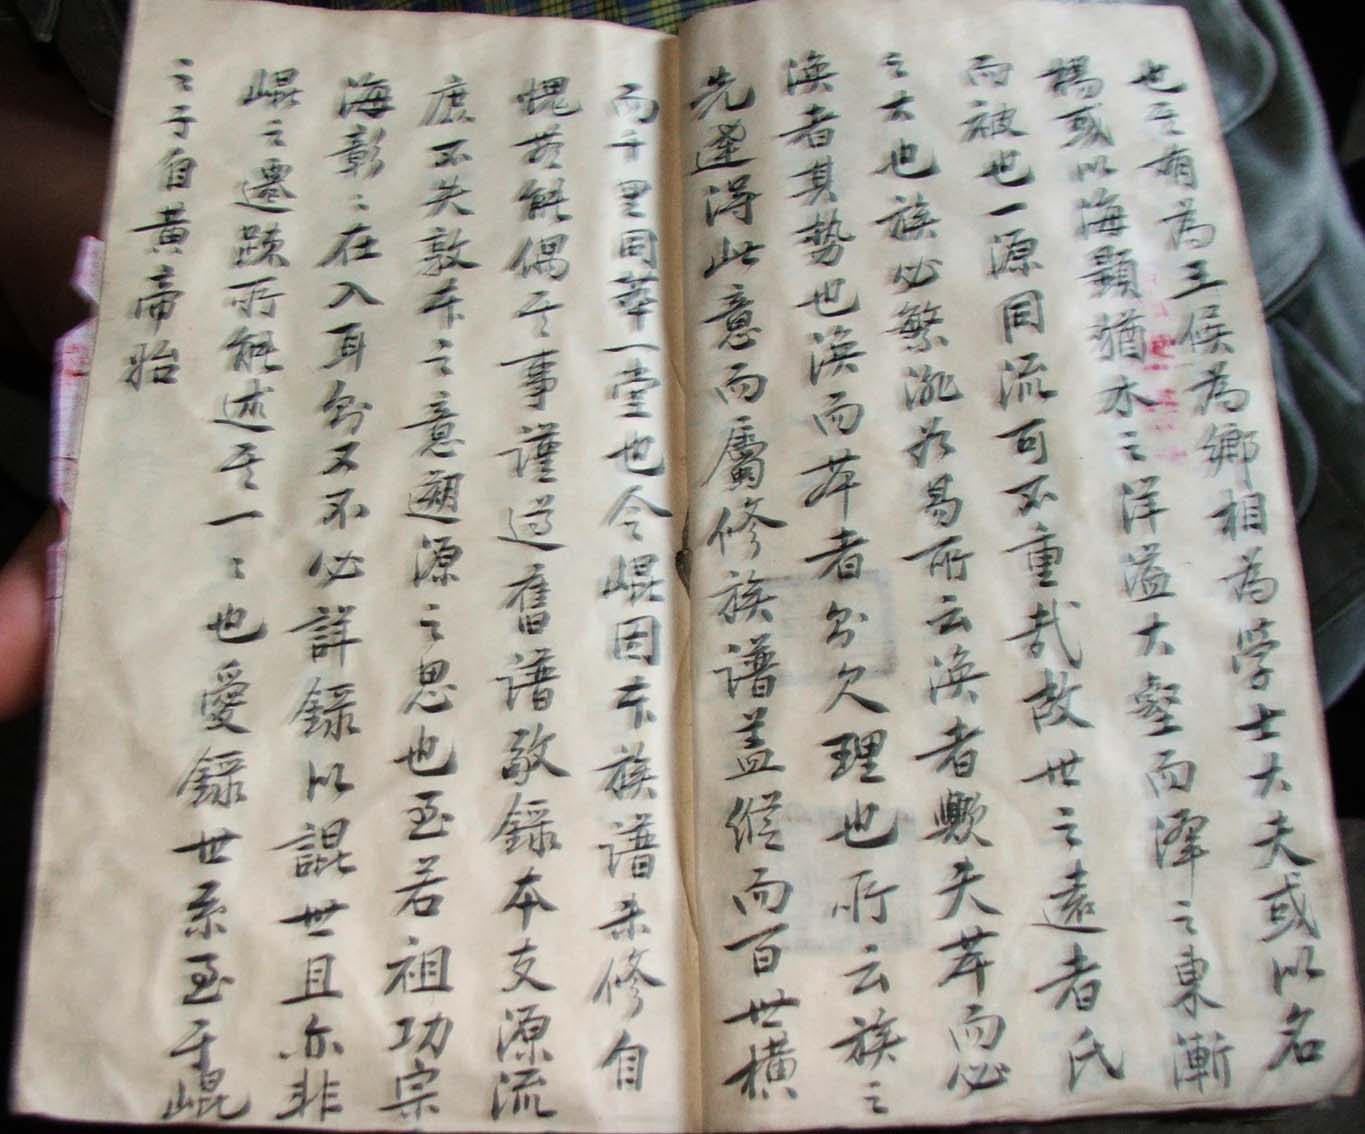 也至有為王侯為鄉相為学士大夫或以名
楊或以海顯猶水之洋溢大壑而澤之東漸
而被也一源同流可不重哉故世之遠者氏
之大也族必繁派為易所云渙者歟夫萃而必
渙者其勢也渙而萃者分欠理也所云族之
先達得此意而屬修族譜盖縱而百世横
而千里同萃一堂也今崐因本族譜未修自
愧苦能偶至事謹遵舊譜敬錄本支源流
庶不失敦本之意遡源之思也至若祖功宗
海彰〻在入耳分又不必詳錄以誑世且亦非
崐之遷踈所能述至一〻也爰錄世系至于崐
之于自黄帝始